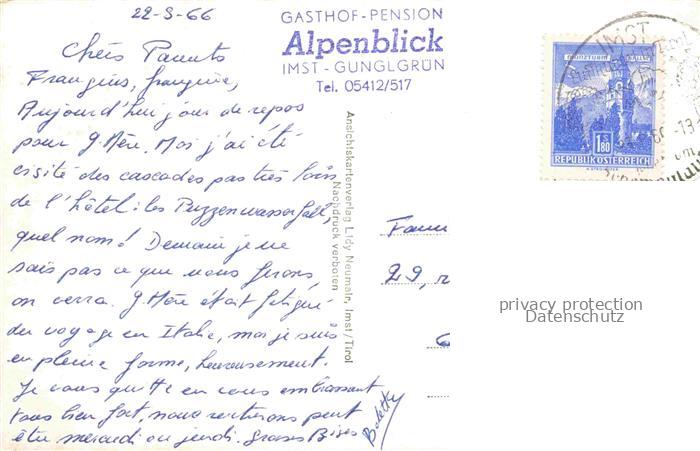 22-8-66
GASTHOF-PENSION
Alpenblick
IMST-GUNGLGRÜN
Tel. 05412/517
Chers Parents
François, françoise,
Aujourd'hui jour de repos
pour G Mère. Moi j'ai été
visité des cascades pas très loin
de l'hôtel: les
quel nom! Demain je ne
sais pas ce que nous ferons,
on verra. G Mère était fatiguée
du voyage en Italie, moi je suis
en pleine forme, heureusement.
Je vous quitte en vous embrassant
tous bien fort, nous rentrerons peut
être mercredi ou jeudi. Grosses Bises
Ansichtskartenverlag Lidy Neumair, Imst/Tirol
Nachdruck verboten
IMST
MÜNZTURM
1.80
S
REPUBLIK ÖSTERREICH
29, r
privacy protection
Datenschutz